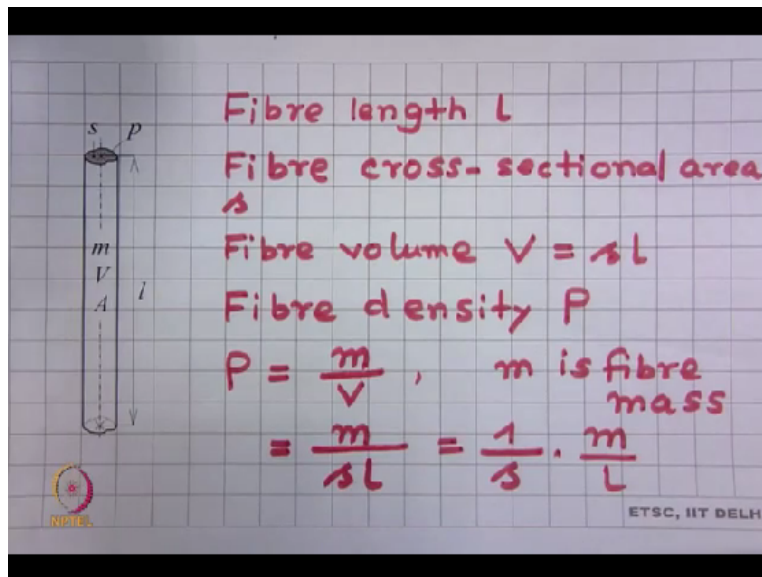 s p
Fibre length l
Fibre cross-sectional area
s
Fibre volume V = sl
m
V
A
l
Fibre density P
P = m/V , m is fibre
mass
= m/sl = 1/s . m/l
NPTEL
ETSC, IIT DELH